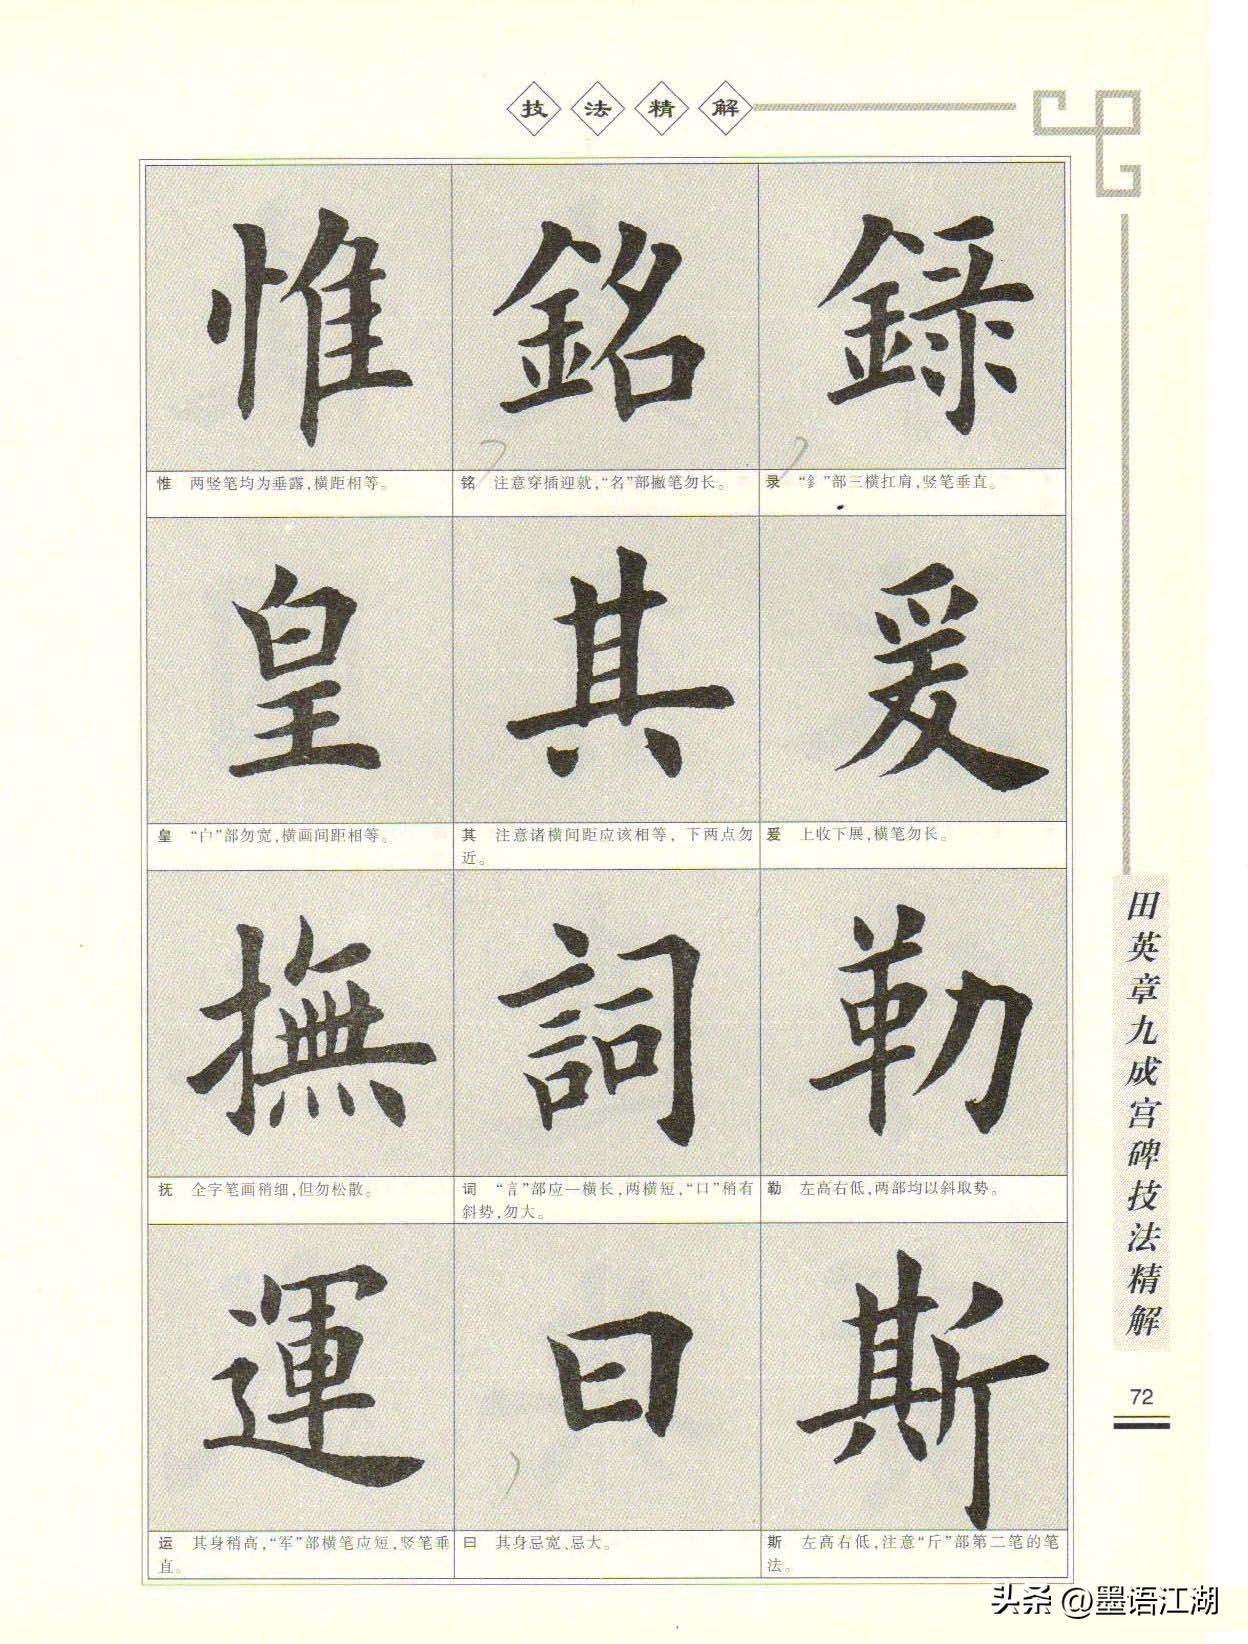 技法精解
惟 銘 録
惟 两竖笔均为垂露,横距相等。
铭 注意穿插迎就,“名”部撇笔勿长。
录 “釒”部三横扛肩,竖笔垂直。
皇 其 爰
皇 “白”部勿宽,横画间距相等。
其 注意诸横间距应该相等,下两点勿
近。
爰 上收下展,横笔勿长。
撫 詞 勒
抚 全字笔画稍细,但勿松散。
词 “言”部应一横长,两横短,“口”稍有
斜势,勿大。
勒 左高右低,两部均以斜取势。
運 曰 斯
运 其身稍高,“军”部横笔应短,竖笔垂
直。
曰 其身忌宽、忌大。
斯 左高右低,注意“斤”部第二笔的笔
法。
田英章九成宫碑技法精解
72
头条 @墨语江湖